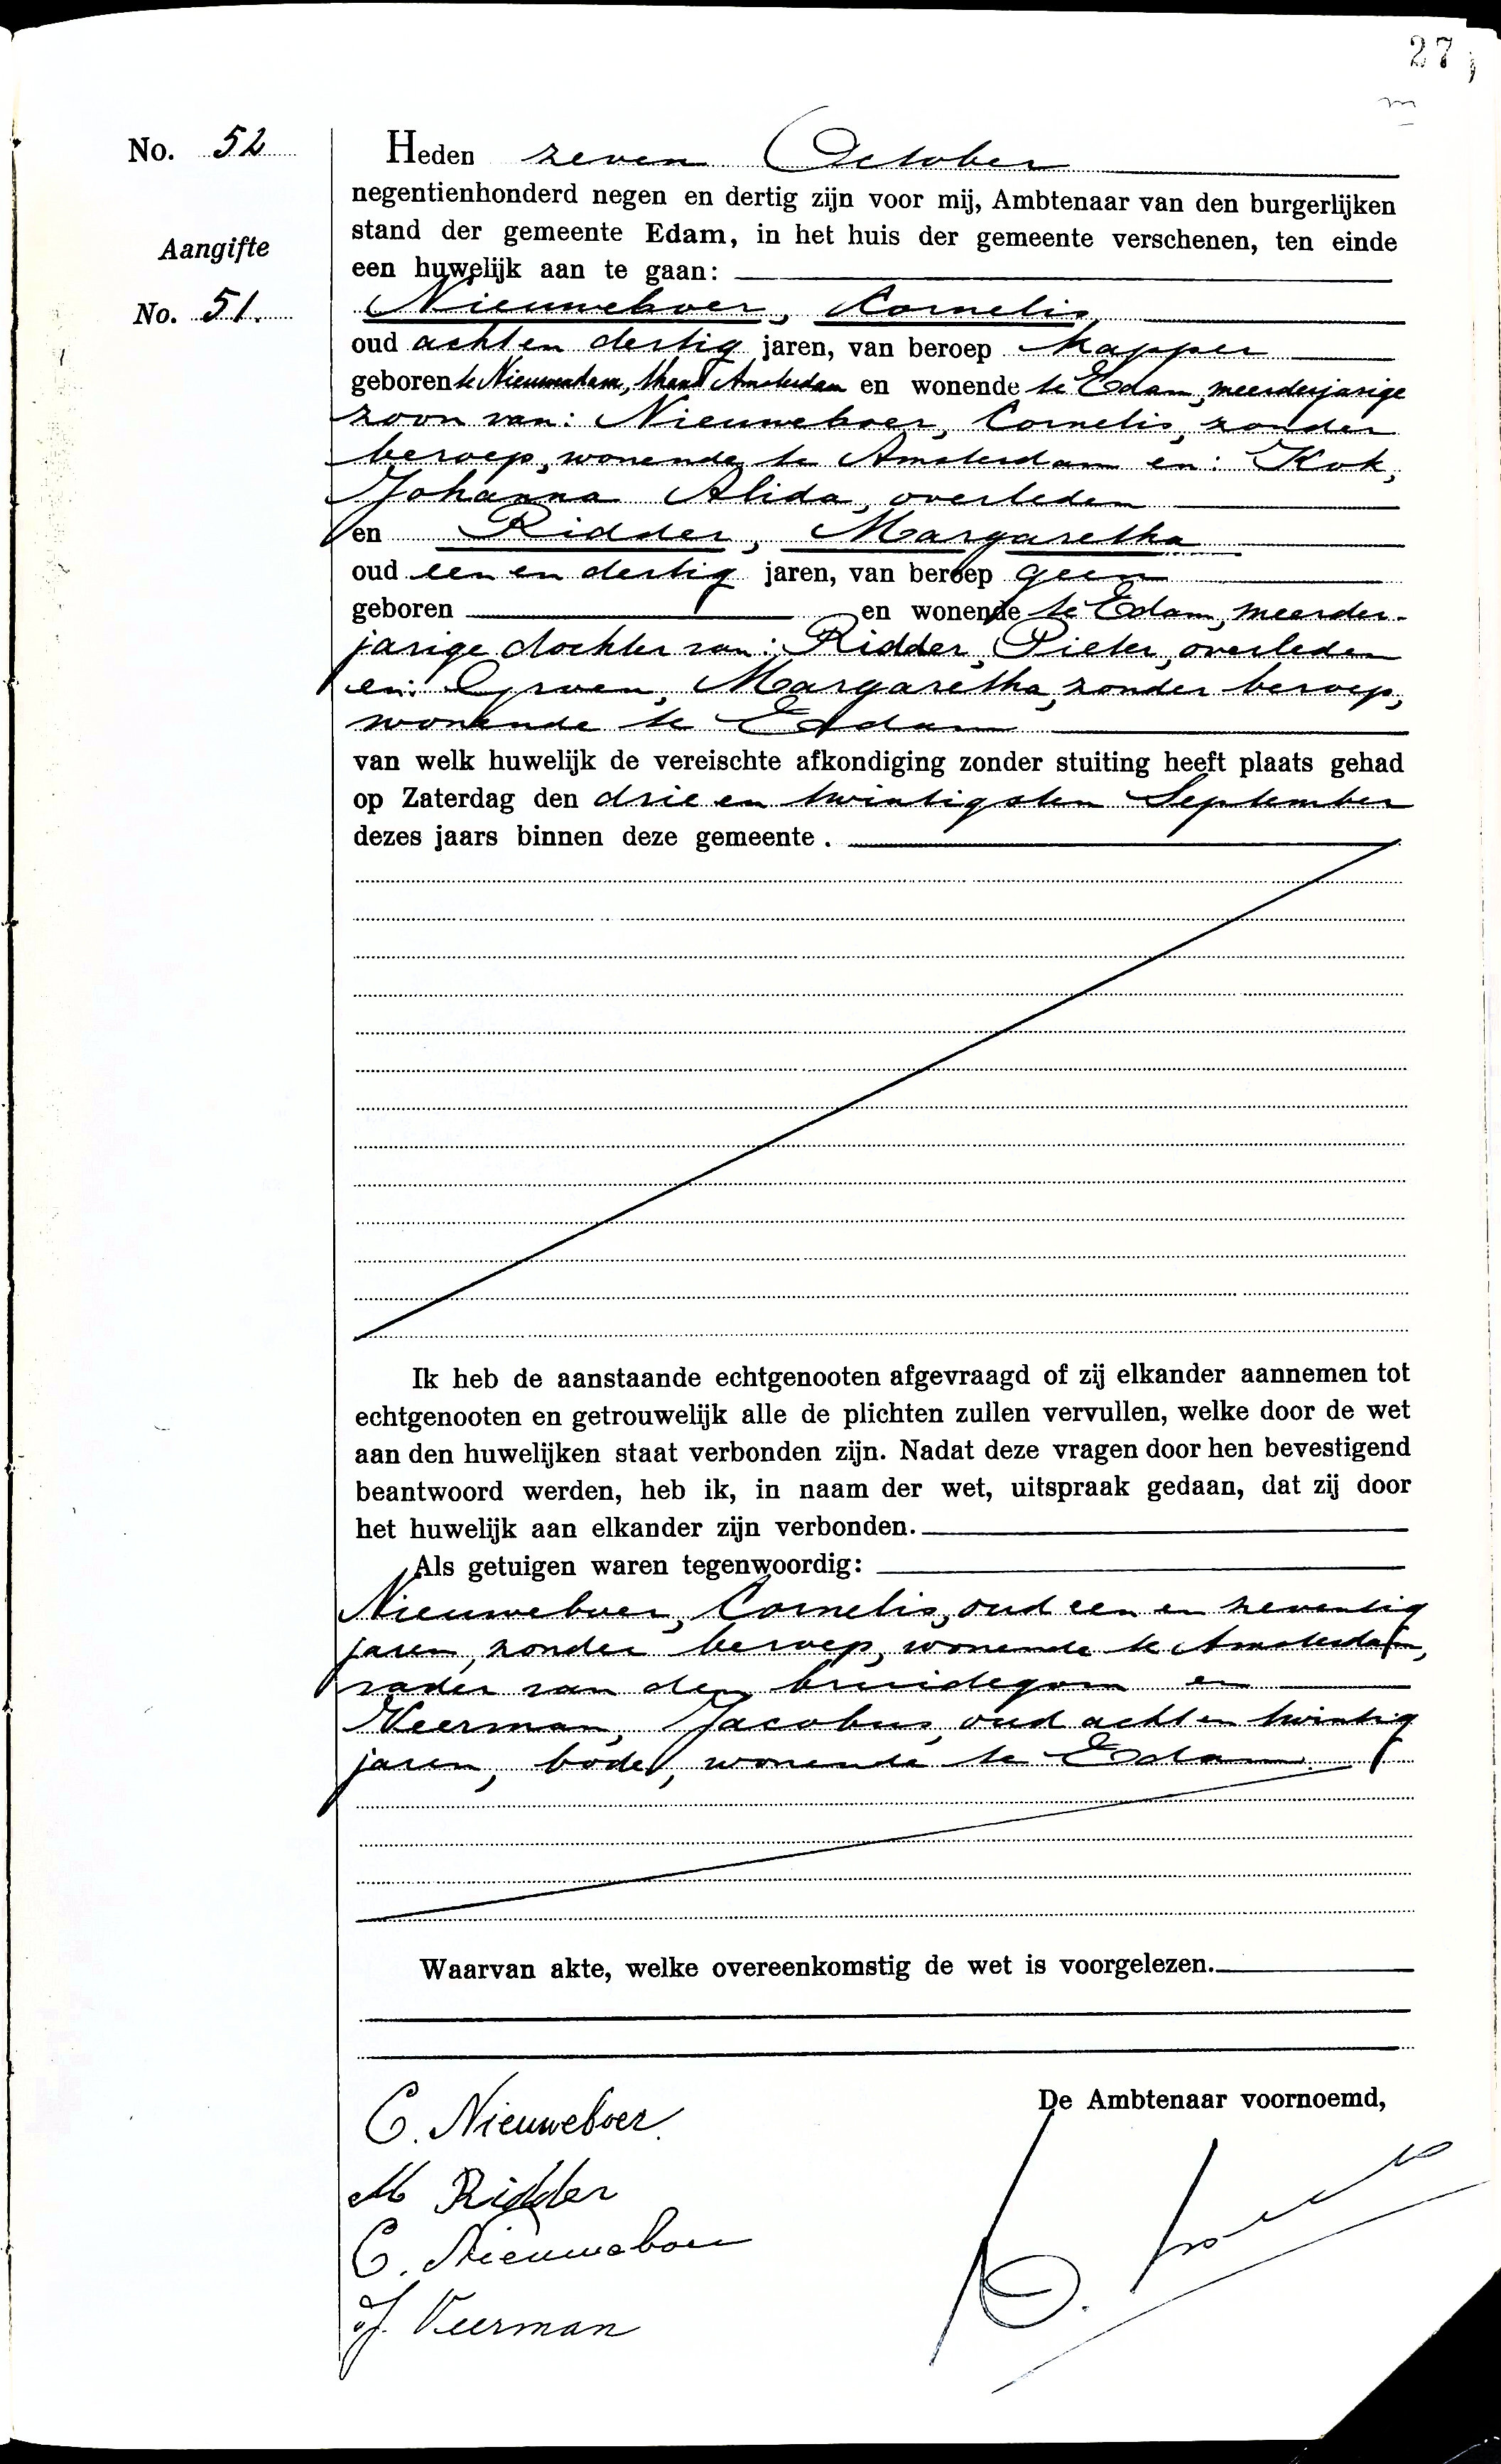 27
No. 52
Aangifte
No. 51.
Heden zeven October
negentienhonderd negen en dertig zijn voor mij, Ambtenaar van den burgerlijken
stand der gemeente Edam, in het huis der gemeente verschenen, ten einde
een huwelijk aan te gaan:
Nieuweboer, Cornelis,
oud acht en dertig jaren, van beroep kapper
geboren te Nieuwendam, thans Amsterdam en wonende te Edam, meerderjarige
zoon van: Nieuweboer, Cornelis, zonder
beroep, wonende te Amsterdam en: Kok,
Johanna Alida, overleden
en Ridder, Margaretha
oud een en dertig jaren, van beroep geen
geboren en wonende te Edam, meerder-
jarige dochter van: Ridder, Pieter, overleden
en: Groen, Margaretha, zonder beroep,
wonende te Edam
van welk huwelijk de vereischte afkondiging zonder stuiting heeft plaats gehad
op Zaterdag den drie en twintigsten September
dezes jaars binnen deze gemeente.
Ik heb de aanstaande echtgenooten afgevraagd of zij elkander aannemen tot
echtgenooten en getrouwelijk alle de plichten zullen vervullen, welke door de wet
aan den huwelijken staat verbonden zijn. Nadat deze vragen door hen bevestigend
beantwoord werden, heb ik, in naam der wet, uitspraak gedaan, dat zij door
het huwelijk aan elkander zijn verbonden.
Als getuigen waren tegenwoordig:
Nieuweboer, Cornelis, oud een en zeventig
jaren, zonder beroep, wonende te Amsterdam,
vader van den bruidegom en
Veerman, Jacobus, oud acht en twintig
jaren, bode, wonende te Edam.
Waarvan akte, welke overeenkomstig de wet is voorgelezen.
De Ambtenaar voornoemd,
C. Nieuweboer.
M Ridder
C. Nieuweboer
J. Veerman